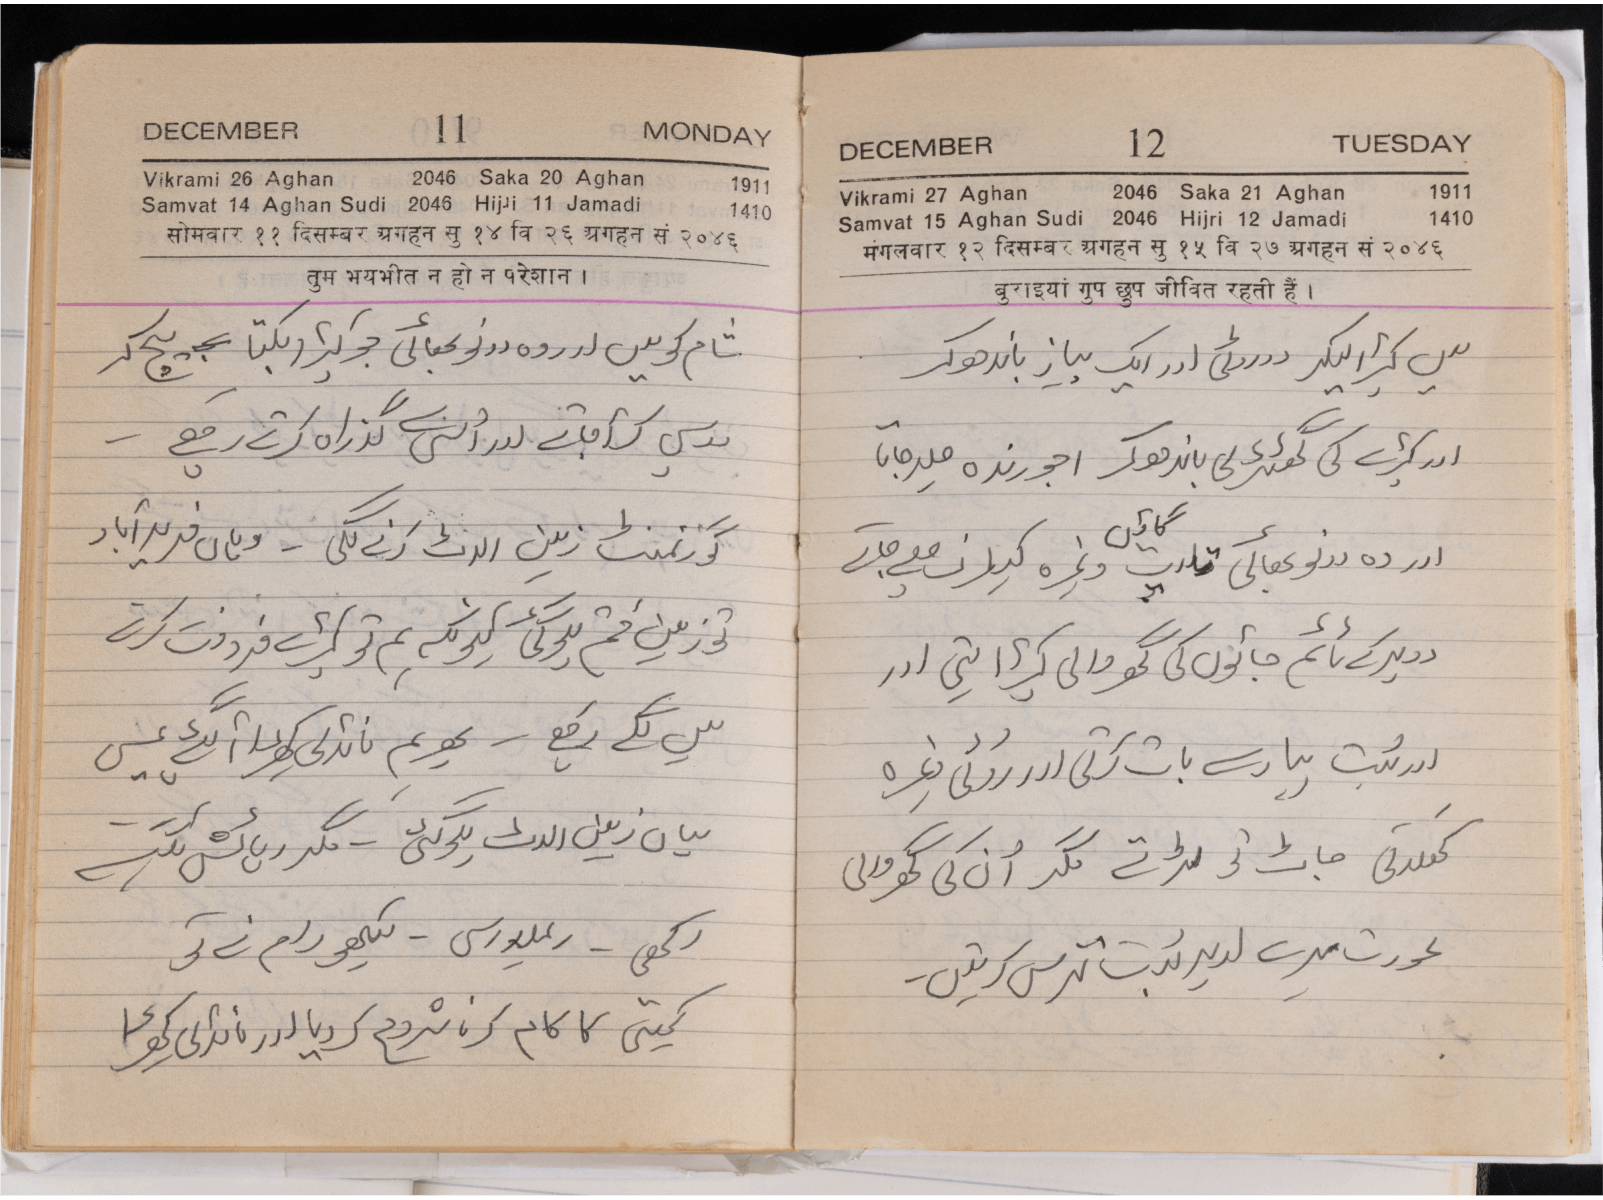 DECEMBER 11 MONDAY
Vikrami 26 Aghan 2046 Saka 20 Aghan 1911
Samvat 14 Aghan Sudi 2046 Hijri 11 Jamadi 1410
सोमवार ११ दिसम्बर अगहन सु १४ वि २६ अगहन सं २०४६
तुम भयभीत न हो न परेशान ।
شام کو میں اور وہ دونو بھائی جو کپڑا بکتا بیچ کر
واپس کر آجاتے اور اُسی سے گذراہ کرتے رہے ۔
گورنمنٹ زمین الاٹ کرنے لگی ۔ وہاں فریدآباد
تو زمین ختم ہوگئی کیونکہ ہم تو کپڑے فروخت کرتے
میں لگے رہے ۔ پھر ہم آگئے
یہاں زمین الاٹ ہوگئی ۔ مگر رہائش
رکھی ۔ رام نے تو
کھیتی کا کام کرنا شروع کر دیا اور
DECEMBER 12 TUESDAY
Vikrami 27 Aghan 2046 Saka 21 Aghan 1911
Samvat 15 Aghan Sudi 2046 Hijri 12 Jamadi 1410
मंगलवार १२ दिसम्बर अगहन सु १५ वि २७ अगहन सं २०४६
बुराइयां गुप छुप जीवित रहती हैं ।
میں کپڑا لیکر دو روٹی اور ایک پیاز باندھ کر
اور کپڑے کی گٹھڑی باندھ کر اجورندہ چلا جاتا
گاؤں
اور وہ دونو بھائی وغیرہ کیطرف چلے جاتے
دوپہر کے ٹائم جاٹوں کی گھر والی کپڑا لیتی اور
اور بہت پیار سے بات کرتی اور روٹی وغیرہ
کھلاتی جاٹ تو لڑتے مگر اُن کی گھر والی
عورت میرے اوپر بہت ترس کرتیں ۔